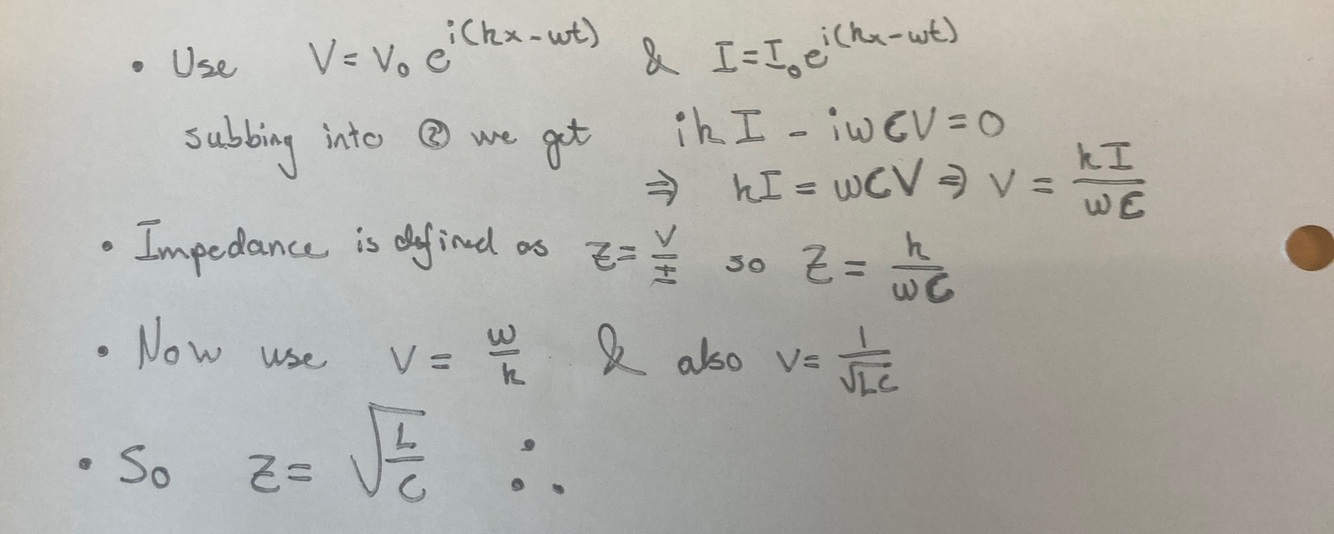 • Use V = V₀ e^{i(kx-ωt)} & I = I₀ e^{i(kx-ωt)}
subbing into ② we get ikI - iωCV = 0
⇒ kI = ωCV ⇒ V = kI/ωC
• Impedance is defined as Z = V/I so Z = k/ωC
• Now use v = ω/k & also v = 1/√LC
• So Z = √(L/C) ∴